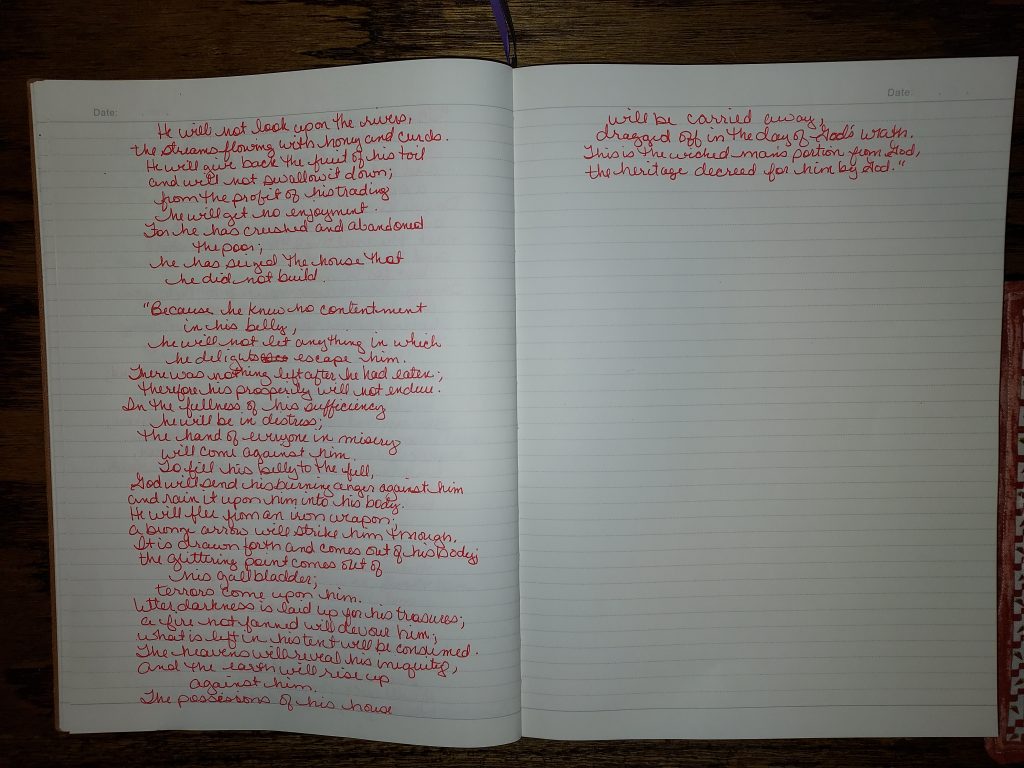 Date:
He will not look upon the rivers,
the streams flowing with honey and curds.
He will give back the fruit of his toil
and will not swallow it down;
from the profit of his trading
he will get no enjoyment.
For he has crushed and abandoned
the poor;
he has seized the house that
he did not build.
"Because he knew no contentment
in his belly,
he will not let anything in which
he delights escape him.
There was nothing left after he had eaten;
therefore his prosperity will not endure.
In the fullness of his sufficiency
he will be in distress;
the hand of everyone in misery
will come against him.
To fill his belly to the full,
God will send his burning anger against him
and rain it upon him into his body.
He will flee from an iron weapon;
a bronze arrow will strike him through.
It is drawn forth and comes out of his body;
the glittering point comes out of
his gallbladder;
terrors come upon him.
Utter darkness is laid up for his treasures;
a fire not fanned will devour him;
what is left in his tent will be consumed.
The heavens will reveal his iniquity,
and the earth will rise up
against him.
The possessions of his house
Date:
will be carried away,
dragged off in the day of God's wrath.
This is the wicked man's portion from God,
the heritage decreed for him by God."